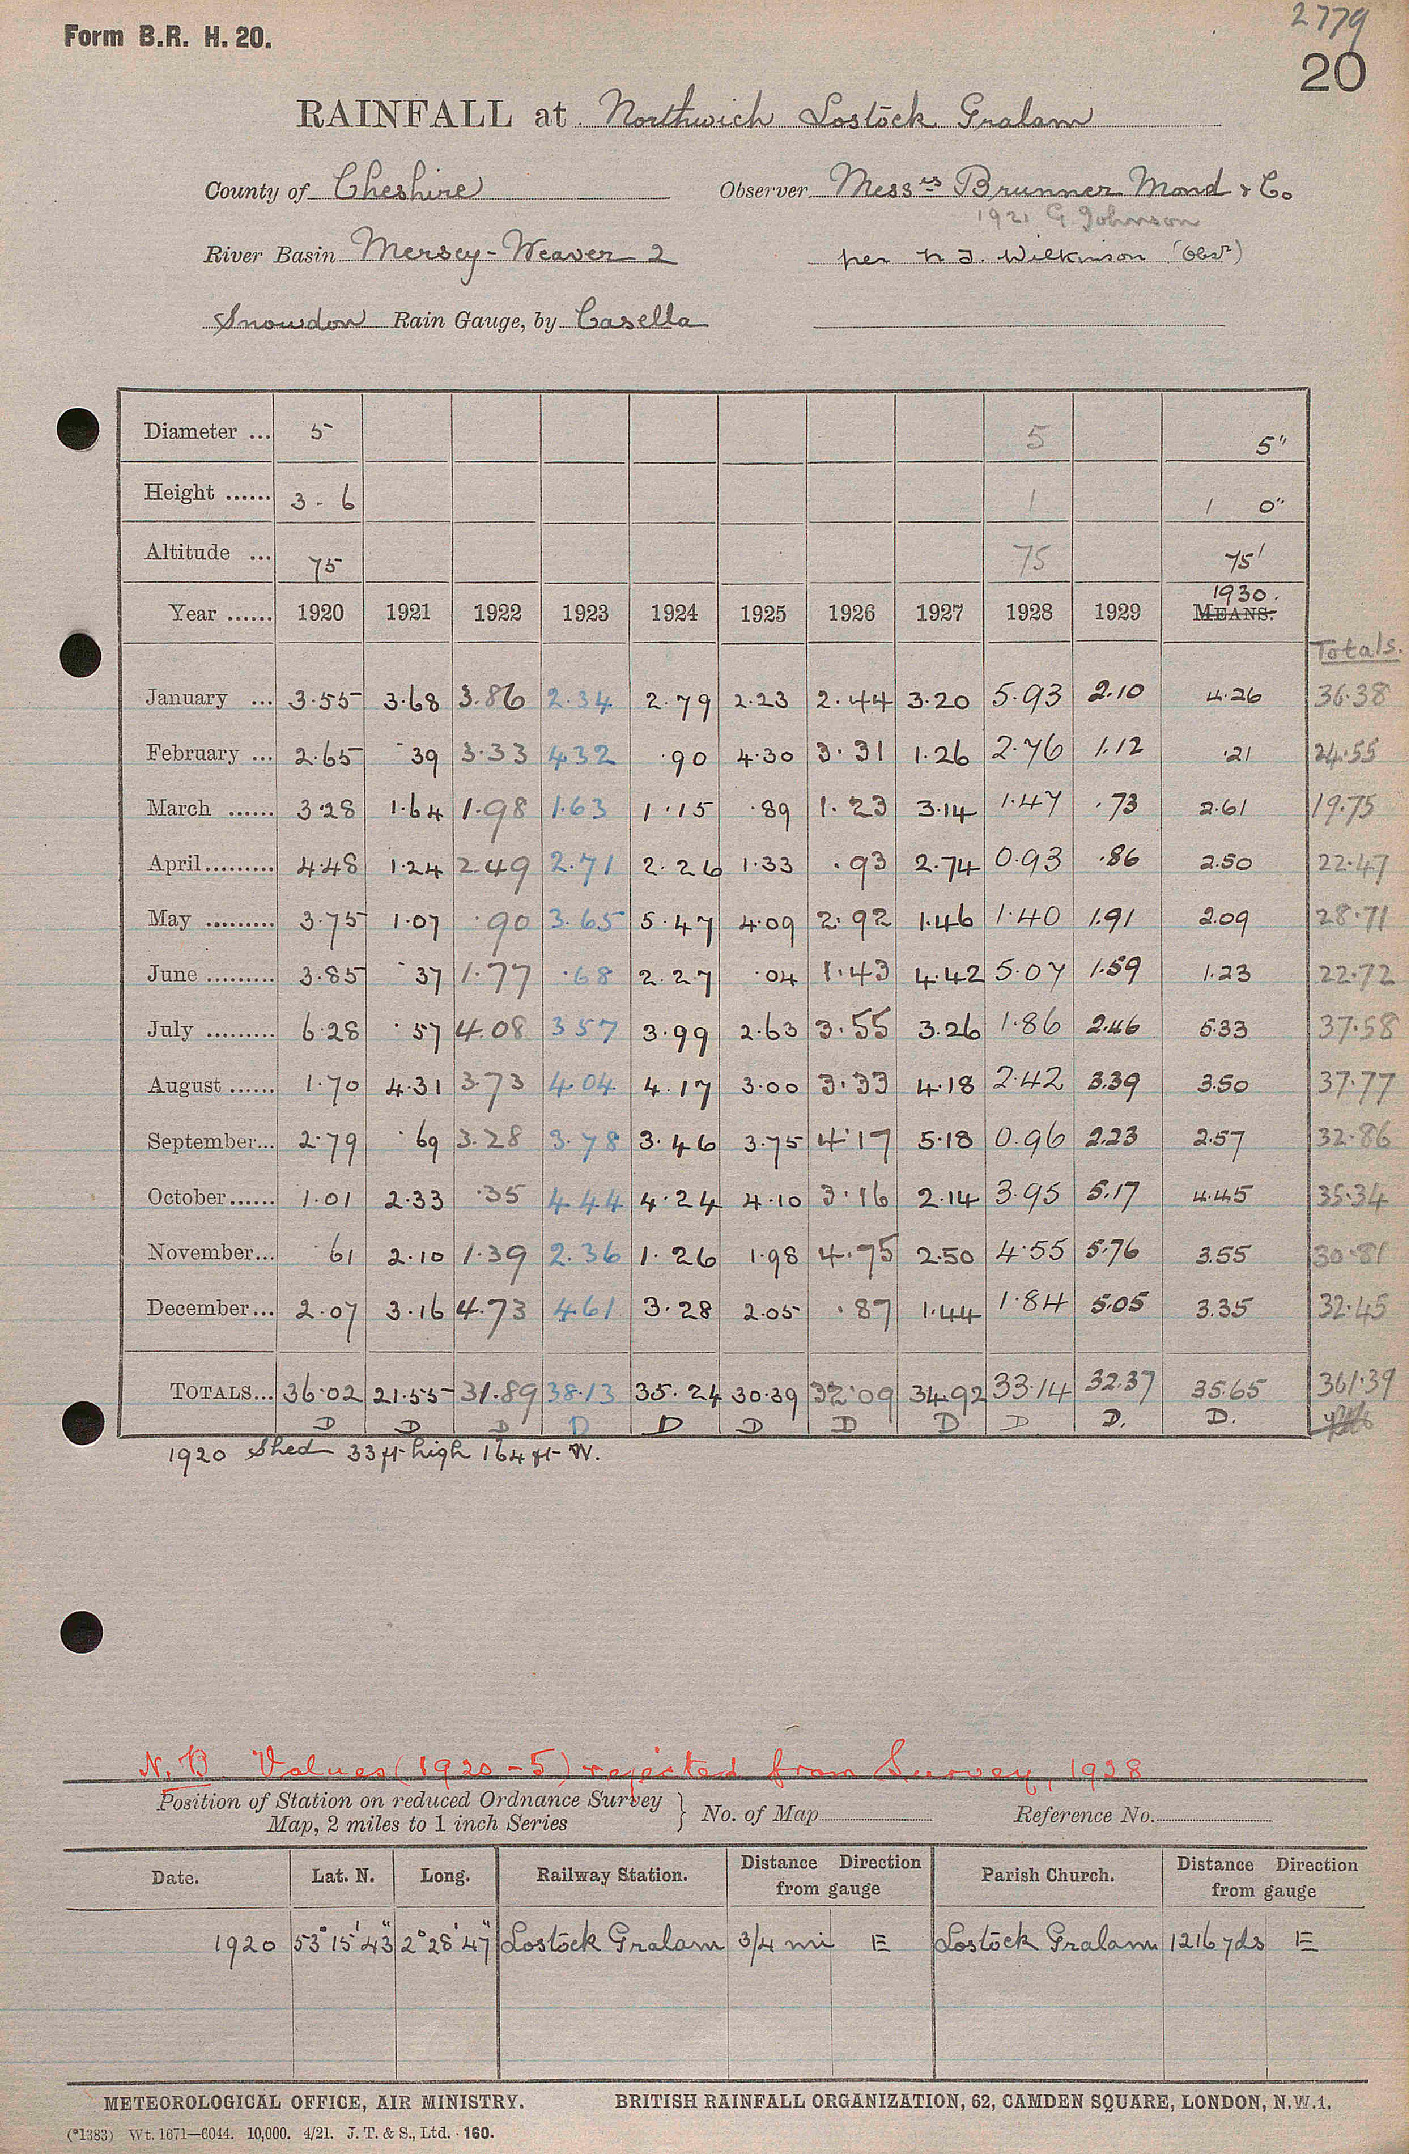 2779
Form B.R. H. 20.
20
RAINFALL at Northwich Lostock Gralam
County of Cheshire Observer Mess rs Brunner Mond & Co
1921 G Johnson
River Basin Mersey-Weaver 2 per N J. Wilkinson (Obsr)
Snowdon Rain Gauge, by Casella
Diameter ... 5 5 5"
Height ...... 3 - 6 1 1 0"
Altitude ... 75 75 75'
Year ...... 1920 1921 1922 1923 1924 1925 1926 1927 1928 1929 1930. MEANS.
Totals.
January ... 3.55 3.68 3.86 2.34 2.79 2.23 2.44 3.20 5.93 2.10 4.26 36.38
February ... 2.65 .39 3.33 4.32 .90 4.30 3.31 1.26 2.76 1.12 .21 24.55
March ...... 3.28 1.64 1.98 1.63 1.15 .89 1.23 3.14 1.47 .73 2.61 19.75
April......... 4.48 1.24 2.49 2.71 2.26 1.33 .93 2.74 0.93 .86 2.50 22.47
May ......... 3.75 1.07 .90 3.65 5.47 4.09 2.92 1.46 1.40 1.91 2.09 28.71
June ......... 3.85 .37 1.77 .68 2.27 .04 1.43 4.42 5.07 1.59 1.23 22.72
July ......... 6.28 .57 4.08 3.57 3.99 2.63 3.55 3.26 1.86 2.46 5.33 37.58
August ...... 1.70 4.31 3.73 4.04 4.17 3.00 3.33 4.18 2.42 3.39 3.50 37.77
September... 2.79 .69 3.28 3.78 3.46 3.75 4.17 5.18 0.96 2.23 2.57 32.86
October...... 1.01 2.33 .35 4.44 4.24 4.10 3.16 2.14 3.95 5.17 4.45 35.34
November... .61 2.10 1.39 2.36 1.26 1.98 4.75 2.50 4.55 5.76 3.55 30.81
December... 2.07 3.16 4.73 4.61 3.28 2.05 .87 1.44 1.84 5.05 3.35 32.45
TOTALS... 36.02 21.55 31.89 38.13 35.24 30.39 32.09 34.92 33.14 32.37 35.65 361.39
D D D D D D D D D D. D.
1920 Shed 33 ft high 164 ft W.
N.B. Values (1920-5) rejected from Survey, 1928
Position of Station on reduced Ordnance Survey Map, 2 miles to 1 inch Series } No. of Map Reference No.
Date. Lat. N. Long. Railway Station. Distance Direction from gauge Parish Church. Distance Direction from gauge
1920 53° 15' 43" 2° 28' 47" Lostock Gralam 3/4 mi E Lostock Gralam 1216 yds E
METEOROLOGICAL OFFICE, AIR MINISTRY. BRITISH RAINFALL ORGANIZATION, 62, CAMDEN SQUARE, LONDON, N.W.1.
(*1383) Wt. 1671—6044. 10,000. 4/21. J. T. & S., Ltd. 160.